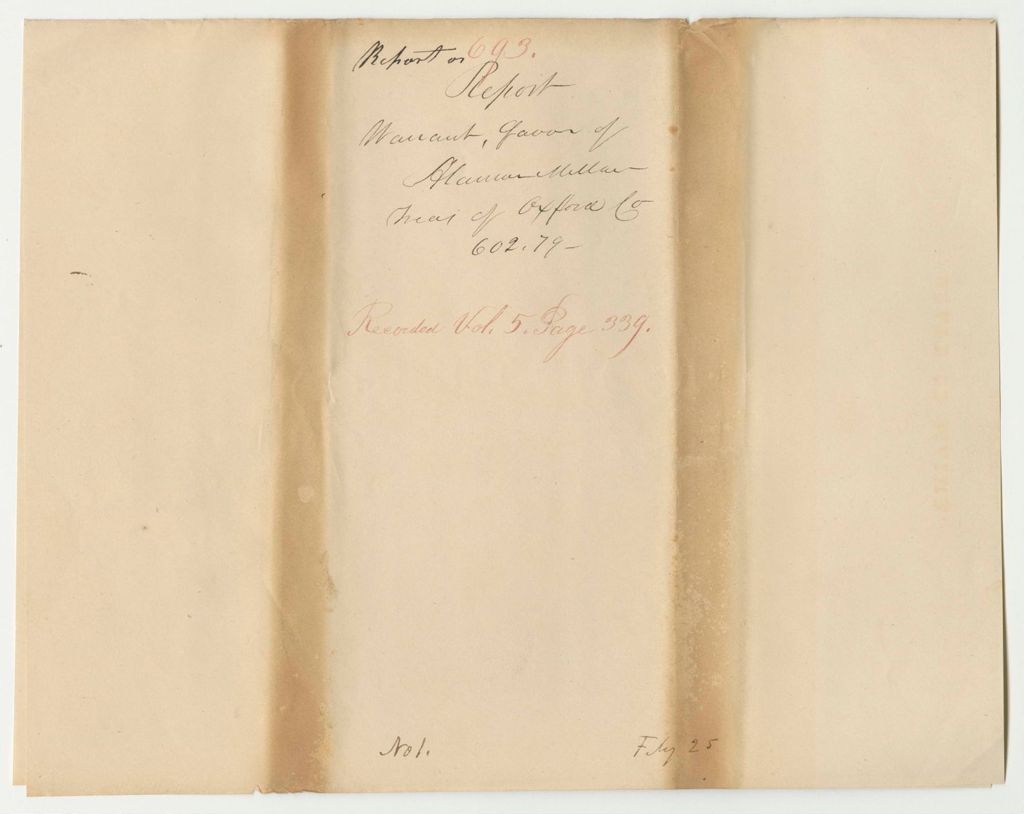 Report on 693.
Report
Warrant, favor of
Alanson Mellen
Treas of Oxford Co
602.79-
Recorded Vol. 5. Page 339.
No 1. Feby 25